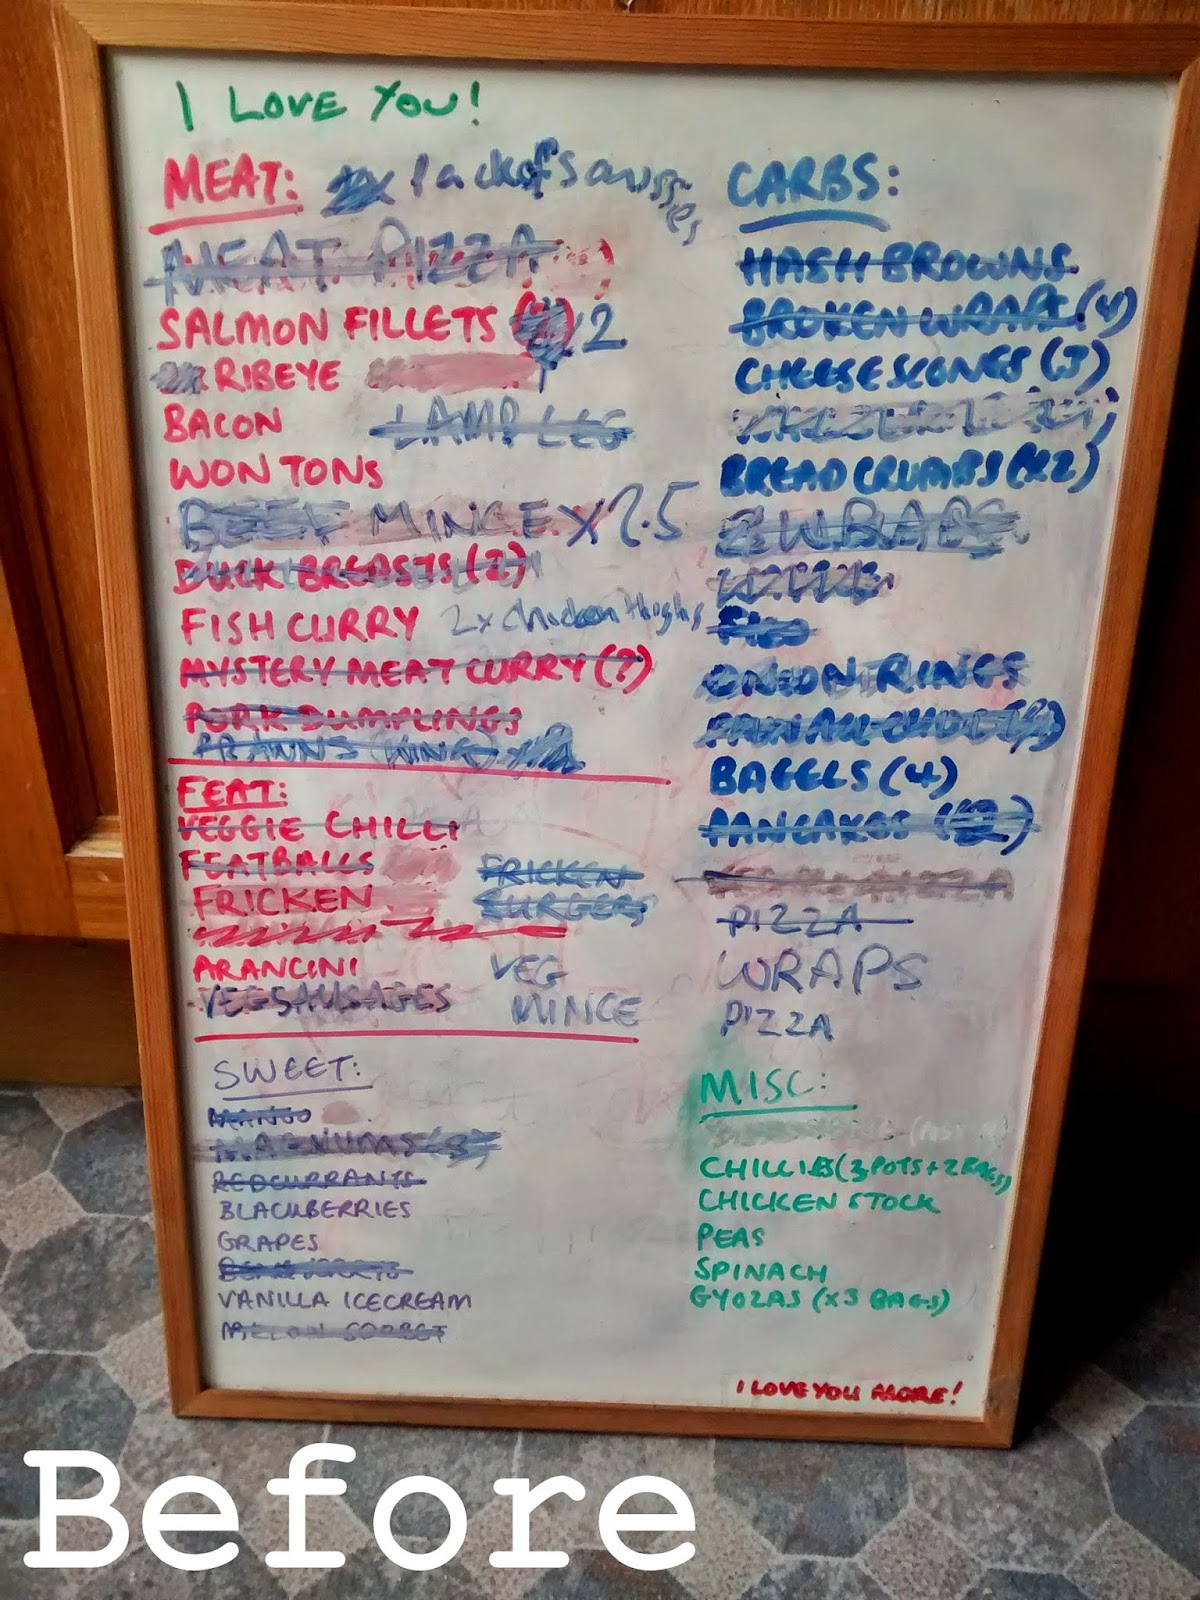 I LOVE YOU!
MEAT: 1 pack of sausages
MEAT PIZZA
SALMON FILLETS 2
RIBEYE
BACON
LAMB LEG
WON TONS
BEEF MINCE X 2.5
DUCK BREASTS (2)
FISH CURRY 2x chicken thighs
MYSTERY MEAT CURRY (?)
PORK DUMPLINGS
PRAWNS (KING)
FEAT:
VEGGIE CHILLI
FEATBALLS
FRICKEN
FRICKEN BURGERS
ARANCINI
VEG SAUSAGES
VEG MINCE
SWEET:
MANGO
MAGNUMS (3)
REDCURRANTS
BLACKBERRIES
GRAPES
VANILLA ICECREAM
MELON SORBET
CARBS:
HASH BROWNS
BROKEN WRAPS (4)
CHEESE SCONES (5)
BREAD CRUMBS (x2)
ONION RINGS
BAGELS (4)
PANCAKES
PIZZA
WRAPS
PIZZA
MISC:
CHILLIES (3 POTS + 2 BAGS)
CHICKEN STOCK
PEAS
SPINACH
GYOZAS (x3 BAGS)
I LOVE YOU MORE!
Before